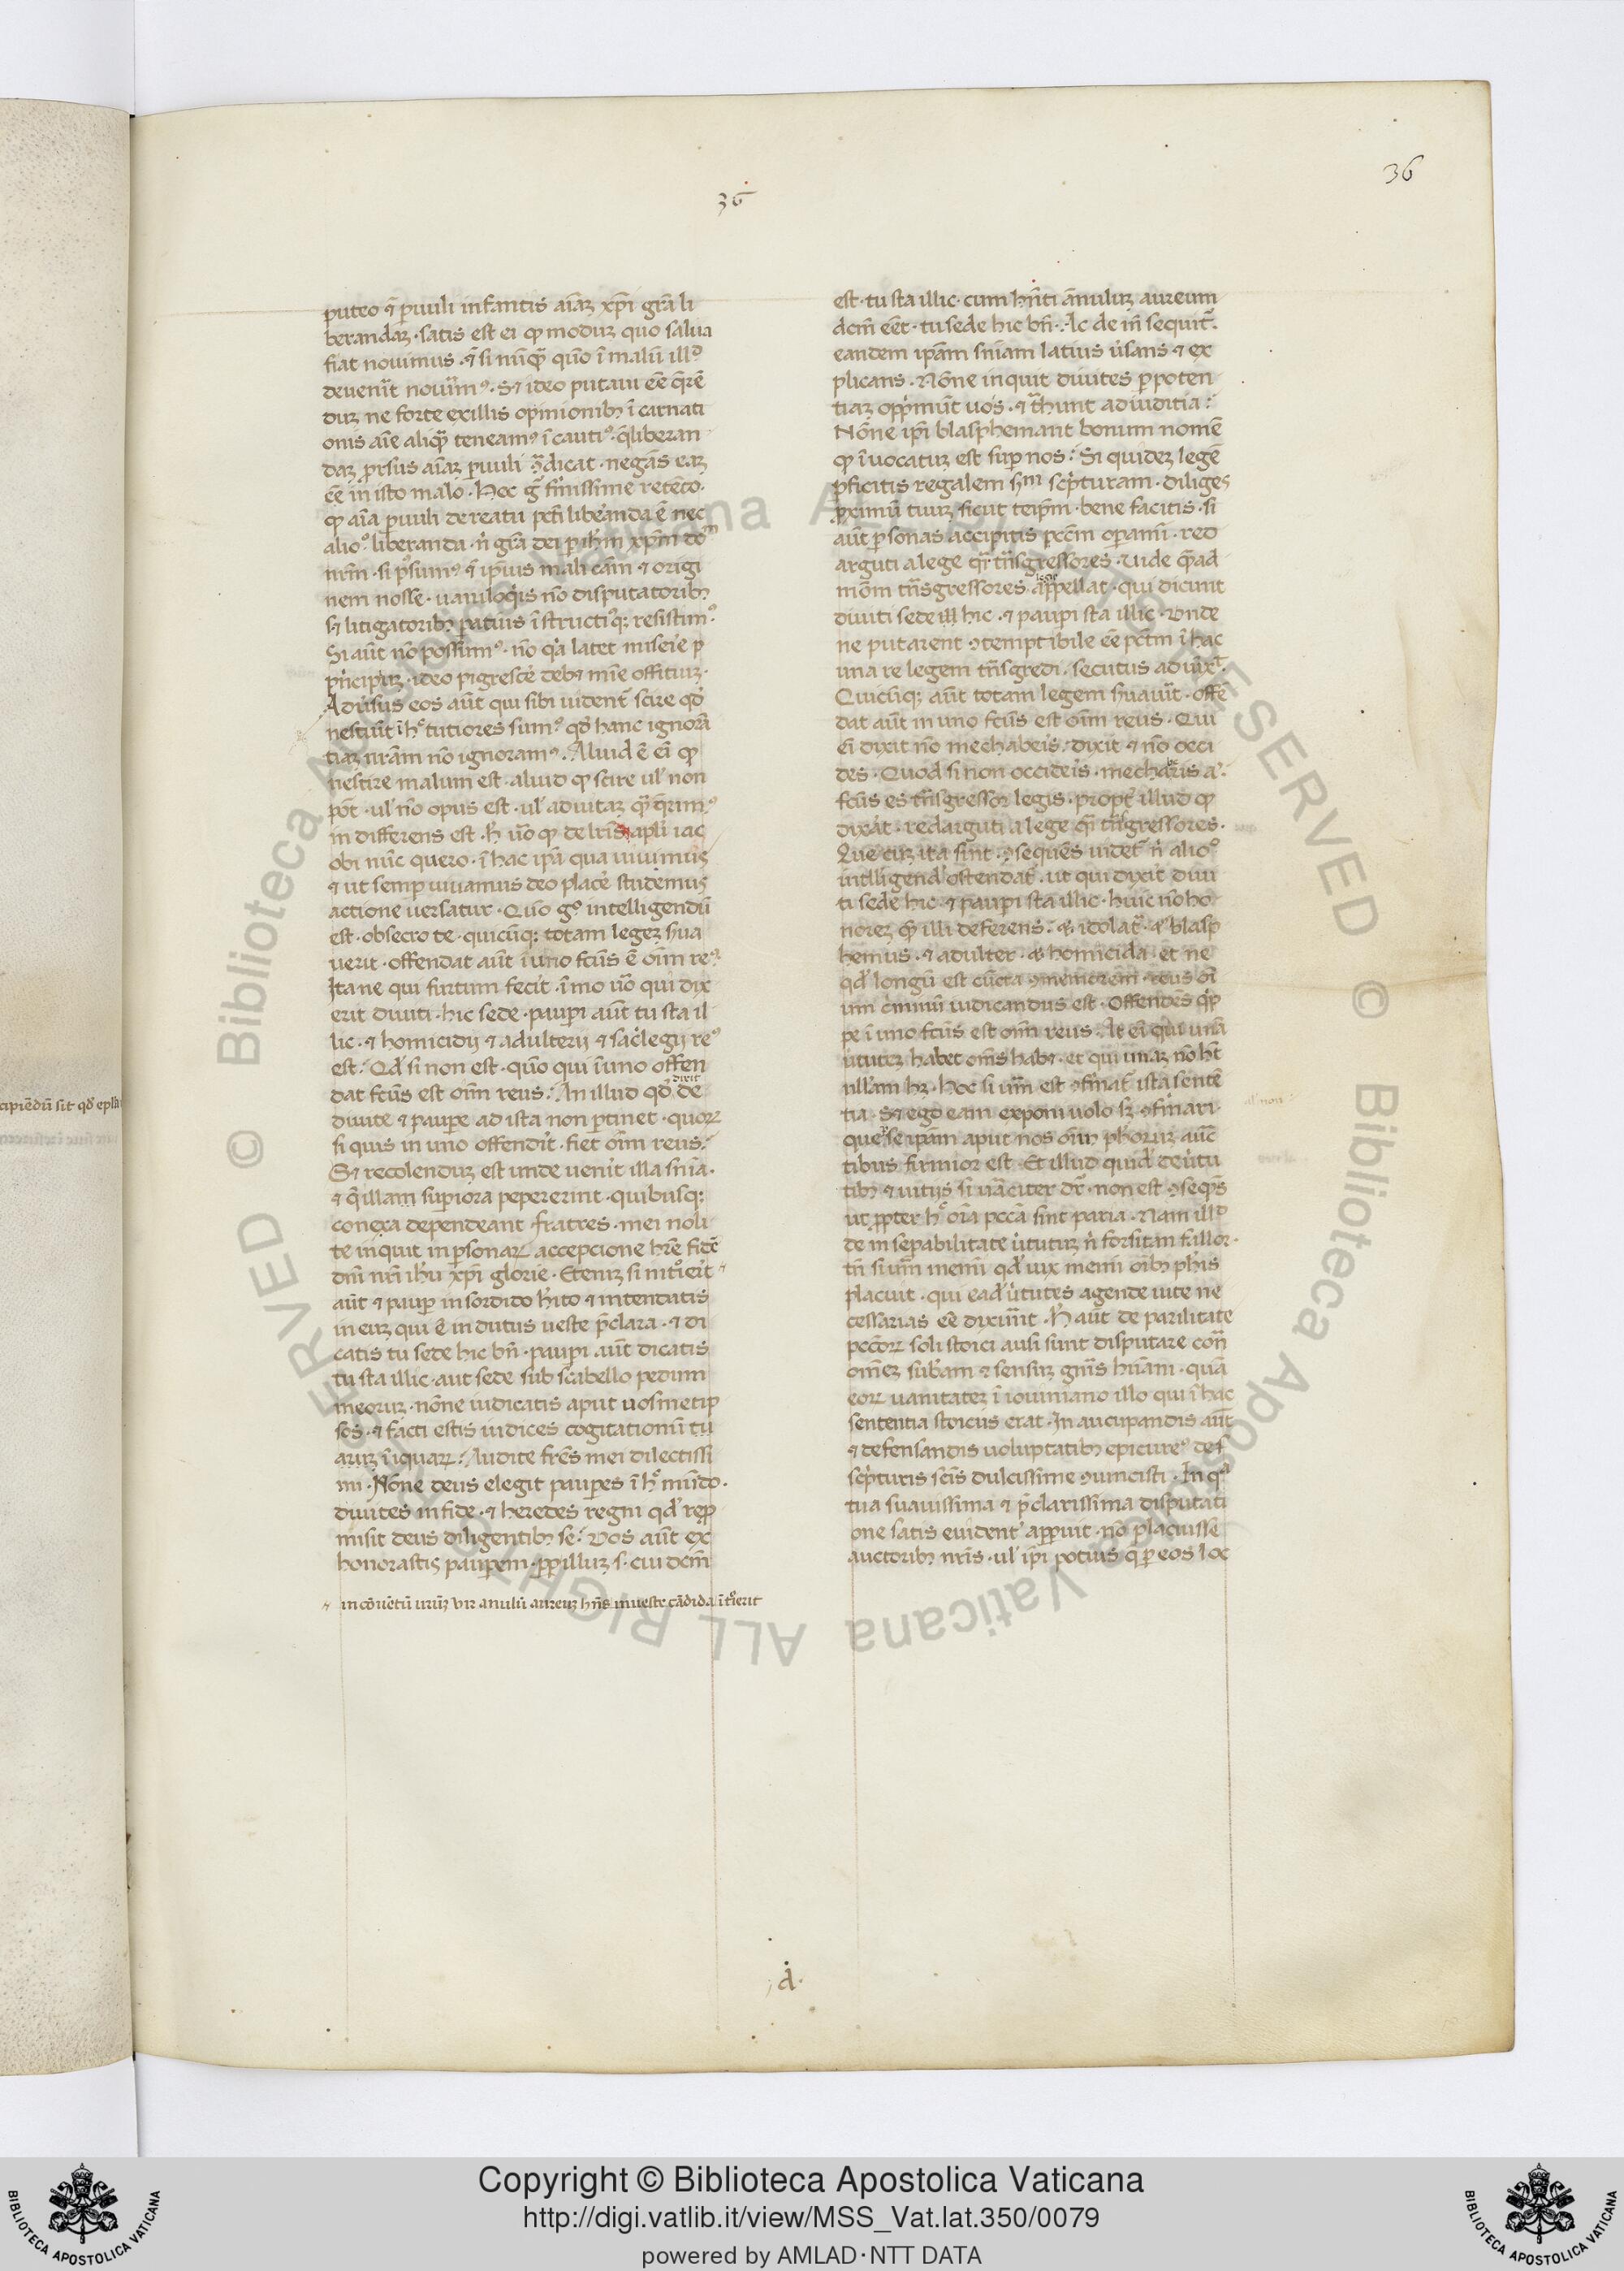 36
36
puteo ⁊ı̄ puuli infantis aı̄aꝫ xp̄i gr̄a li
berandaꝫ · satis est ei ꝙ moduꝫ quo salua
fiat nouimus · ⁊ si nūqꝫ quō ı̄ malū illᵈ
deuenit̄ nouimꝰ · Sꝫ ideo putaui eē q̄rē
duꝫ ne forte ex illis opinionibꝫ ı̄ carnati
onis aı̄e aliqꝫ teneamꝰ ı̄ cautiꝰ · q̄ liberan
daꝫ prsus aı̄aꝫ puuli dicat · negās eaꝫ
eē in isto malo · Hoc g̊ firmissime reteto ·
ꝙ aı̄a puuli de reatu pcti libeanda ē nec
alioꝰ liberanda · n̄ gr̄a dei p ih̄m xp̄m do
nr̄m · si psumꝰ ⁊ı̄ ipsius mali cām ⁊ origi
nem nosse · uaniloqis nō disputatoribꝫ
sꝫ litigatoribꝫ patius ı̄structiqꝫ resistimꝰ
Si aūt nō possumꝰ · nō qa latet miserie p
pncipiuꝫ · ideo pigrescē debꝫ mı̄e offitiuꝫ ·
Adusus eos aūt qui sibi uident̄ scire qd̄
nesciūt ı̄ hͦ tutiores sumꝰ qd̄ hanc ignorā
tiaꝫ nr̄am nō ignoramꝰ · Aliud ē eı̄ ꝙ
nescire malum est · aliud ꝙ scire ul̄ non
pōt · ul̄ nō opus est · ul̄ ad uitaꝫ qꝫ q̄rimꝰ
in differens est · h̄ uō ꝙ de lr̄is apl̄i iac
obi nūc quero · ı̄ hac ipā qua uiuimus
⁊ ut semp uiuamus deo placē studemus
actione uersatur · Quō gͦ intelligendū
est · obsecro te · quicūqꝫ totam legeꝫ sua
uerit · offendat aūt ı̄ uno fcūs ē oı̄m reꝰ
Itane qui furtum fecit · ı̄mo uō qui dix
erit diuiti · hic sede · paupi aūt tu sta il
lic · ⁊ homicidij ⁊ adulterij ⁊ sac̄legij reꝰ
est · Qd̄ si non est · quō qui ı̄ uno offen
dat fcūs est oı̄m reus · An illud qd̄ dixit de
diuite ⁊ paupe ad ista non ptinet · quoꝝ
si quis in uno offendit · fiet oı̄m reus ·
Sꝫ recolenduꝫ est unde uenit illa sn̄ia ·
⁊ q̄ illam supiora pepererint · quibusqꝫ
conexa dependeant fratres · mei noli
te inquit in psonaꝝ accepcione hr̄e fidē
dn̄i nr̄i ih̄u xp̄i glorie · Eteniꝫ si intͦierit
aūt ⁊ paup in sordido h̄ito ⁊ intendatis
in euꝫ qui ē indutus ueste p̄clara · ⁊ di
catis tu sede hic bn̄ · paupi aūt dicatis
tu sta illic · aut sede sub scabello pedum
meoruꝫ · nōne iudicatis aput uosmetip
sos · ⁊ facti estis iudices cogitationū
ı̄iquaꝝ · Audite frēs mei dilectissi
mi · Nōne deus elegit pauperes ı̄ hͦ mūdo ·
diuites in fide · ⁊ heredes regni qd̄ rep
misit deus diligentibꝫ se · Vos aūt ex
honorastis paupem · pp illuꝫ s · cui dcm̄
in cōuētū urūꝫ uir anulū aureuꝫ hn̄s in ueste cādida ı̄tͦierit
est · tu sta illic · cum hn̄ti ānuluꝫ aureum
dcm̄ eēt · tu sede hic bn̄ · Ac de in̄ sequit̄ ·
eandem ipām sn̄iam latius ūsans ⁊ ex
plicans · Nōne inquit diuites p poten
tiaꝫ opprimūt uos · ⁊ tr̄hunt ad iuditia ·
Nōne ipı̄ blasphemant bonum nomē
ꝙ ı̄uocatuꝫ est sup nos · Si quideꝫ legē
pficitis regalem sm scpturam · diliges
pximū tuuꝫ sicut teipm̄ · bene facitis · si
aūt psonas accipitis pccm̄ opamı̄ · red
arguti a lege q̄i tn̄sgressores · Vide q̄ad
mōm tn̄sgressores appellat · qui dicunt
diuiti sede hic · ⁊ paupi sta illic · Vnde
ne putarent ꝯtemptibile eē pctm̄ ı̄ hac
una re legem tn̄sgredi · secutus adiūxt̄ ·
Quicūqꝫ aūt totam legem suauit̄ · offē
dat aūt in uno fcūs est oı̄m reus · Qui
eı̄ dixit nō mechabeis · dixit ⁊ nō occi
des · Quod si non occideis · mecharis a ·
fcūs es tn̄sgressor legis · propt̄ illud ꝙ
dixat · redarguti a lege q̄i tn̄gressores ·
Que cuꝫ ita sint · ꝯsequēs uidet̄ n̄ alioꝰ
intelligend̄ ostendat̄ · ut qui dixit diui
ti sede hic · ⁊ paupi sta illic · huic nō ho
noreꝫ qꝫ illi deferens · ⁊ idolat̄ · ⁊ blasp
hemus · ⁊ adulter · ⁊ homicida · et ne
qd̄ longū est cūcta ꝯmemorem · reus oı̄
um criminū iudicandus est · Offendēs qp
pe ı̄ uno fcūs est oı̄m reus · At eı̄ qui unā
ututeꝫ habet oēs habꝫ · et qui unaꝫ nō hꝫ
nullam hꝫ · Hoc si um̄ est ꝯfirmat̄ ista sentē
tia · Sꝫ ego eam exponi uolo sꝫ ꝯfirmari ·
que se ipam aput nos oı̄m phoruꝫ auc
tibus firmior est · Et illud quid̄ de utu
tibꝫ ⁊ uitijs si uāciter dr̄ · non est ꝯseqns
ut ppter hͦ oı̄a pccā sint paria · Nam illᵈ
de insepabilitate ututuꝫ n̄ forsitan fallor ·
tn̄ si um̄ memı̄ qd̄ uix memı̄ oı̄bꝫ phis
placuit · qui ead̄ ututes agende uite ne
cessarias eē dixūnt · H̄ aūt de parilitate
pccōꝝ soli stoici ausi sunt disputare con̄
omēꝫ subam ⁊ sensuꝫ gn̄is hūani · quā
eoꝝ uanitateꝫ ı̄ iouiniano illo qui ı̄ hac
sententia stoicus erat · In aucupandis aūt
⁊ defensandis uoluptatibꝫ epicureꝰ de s
scpturis scīs dulcissime ꝯuincisti · In qᵃ
tua suauissima ⁊ p̄clarissima disputati
one satis euident̄ appuit · nō placuisse
auctoribꝫ nr̄is · ul̄ ipı̄ potius q p eos loc
cipiēdū sit qd̄ epla
A
Copyright © Biblioteca Apostolica Vaticana
http://digi.vatlib.it/view/MSS_Vat.lat.350/0079
powered by AMLAD·NTT DATA
BIBLIOTECA APOSTOLICA VATICANA
BIBLIOTECA APOSTOLICA VATICANA
© Biblioteca Apostolica Vaticana ALL RIGHTS RESERVED © Biblioteca Apostolica Vaticana ALL RIGHTS RESERVED